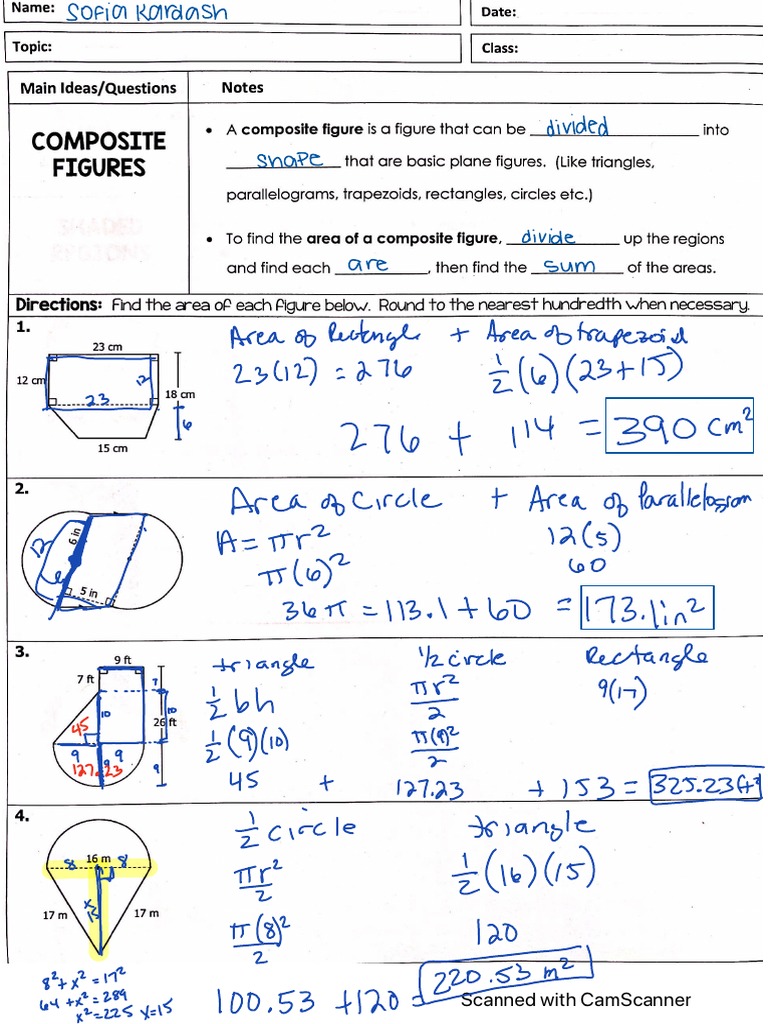 Name: Sofia Kardash
Date:
Topic:
Class:
Main Ideas/Questions
Notes
COMPOSITE
FIGURES
• A composite figure is a figure that can be divided into
shape that are basic plane figures. (Like triangles,
parallelograms, trapezoids, rectangles, circles etc.)
• To find the area of a composite figure, divide up the regions
and find each are, then find the sum of the areas.
SHADED
REGIONS
Directions: Find the area of each figure below. Round to the nearest hundredth when necessary.
1.
23 cm
12 cm
12
23
18 cm
6
15 cm
Area of Rectengle + Area of trapezoid
23(12) = 276 1/2(6)(23+15)
276 + 114 = 390 cm²
2.
12
6 in
6
5 in
Area of Circle + Area of Parallelogram
A = πr² 12(5)
π(6)² 60
36π = 113.1 + 60 = 173.1 in²
3.
9 ft
7 ft
7
10
10
26 ft
45
9 9
127.23
9
9
triangle 1/2 circle Rectangle
1/2 bh πr²/2 9(17)
1/2 (9)(10) π(9)²/2
45 + 127.23 + 153 = 325.23 ft²
4.
8 16 m 8
x
15
17 m 17 m
1/2 circle triangle
πr²/2 1/2(16)(15)
π(8)²/2 120
8² + x² = 17²
64 + x² = 289
x² = 225 x = 15
100.53 + 120 = 220.53 m²
Scanned with CamScanner